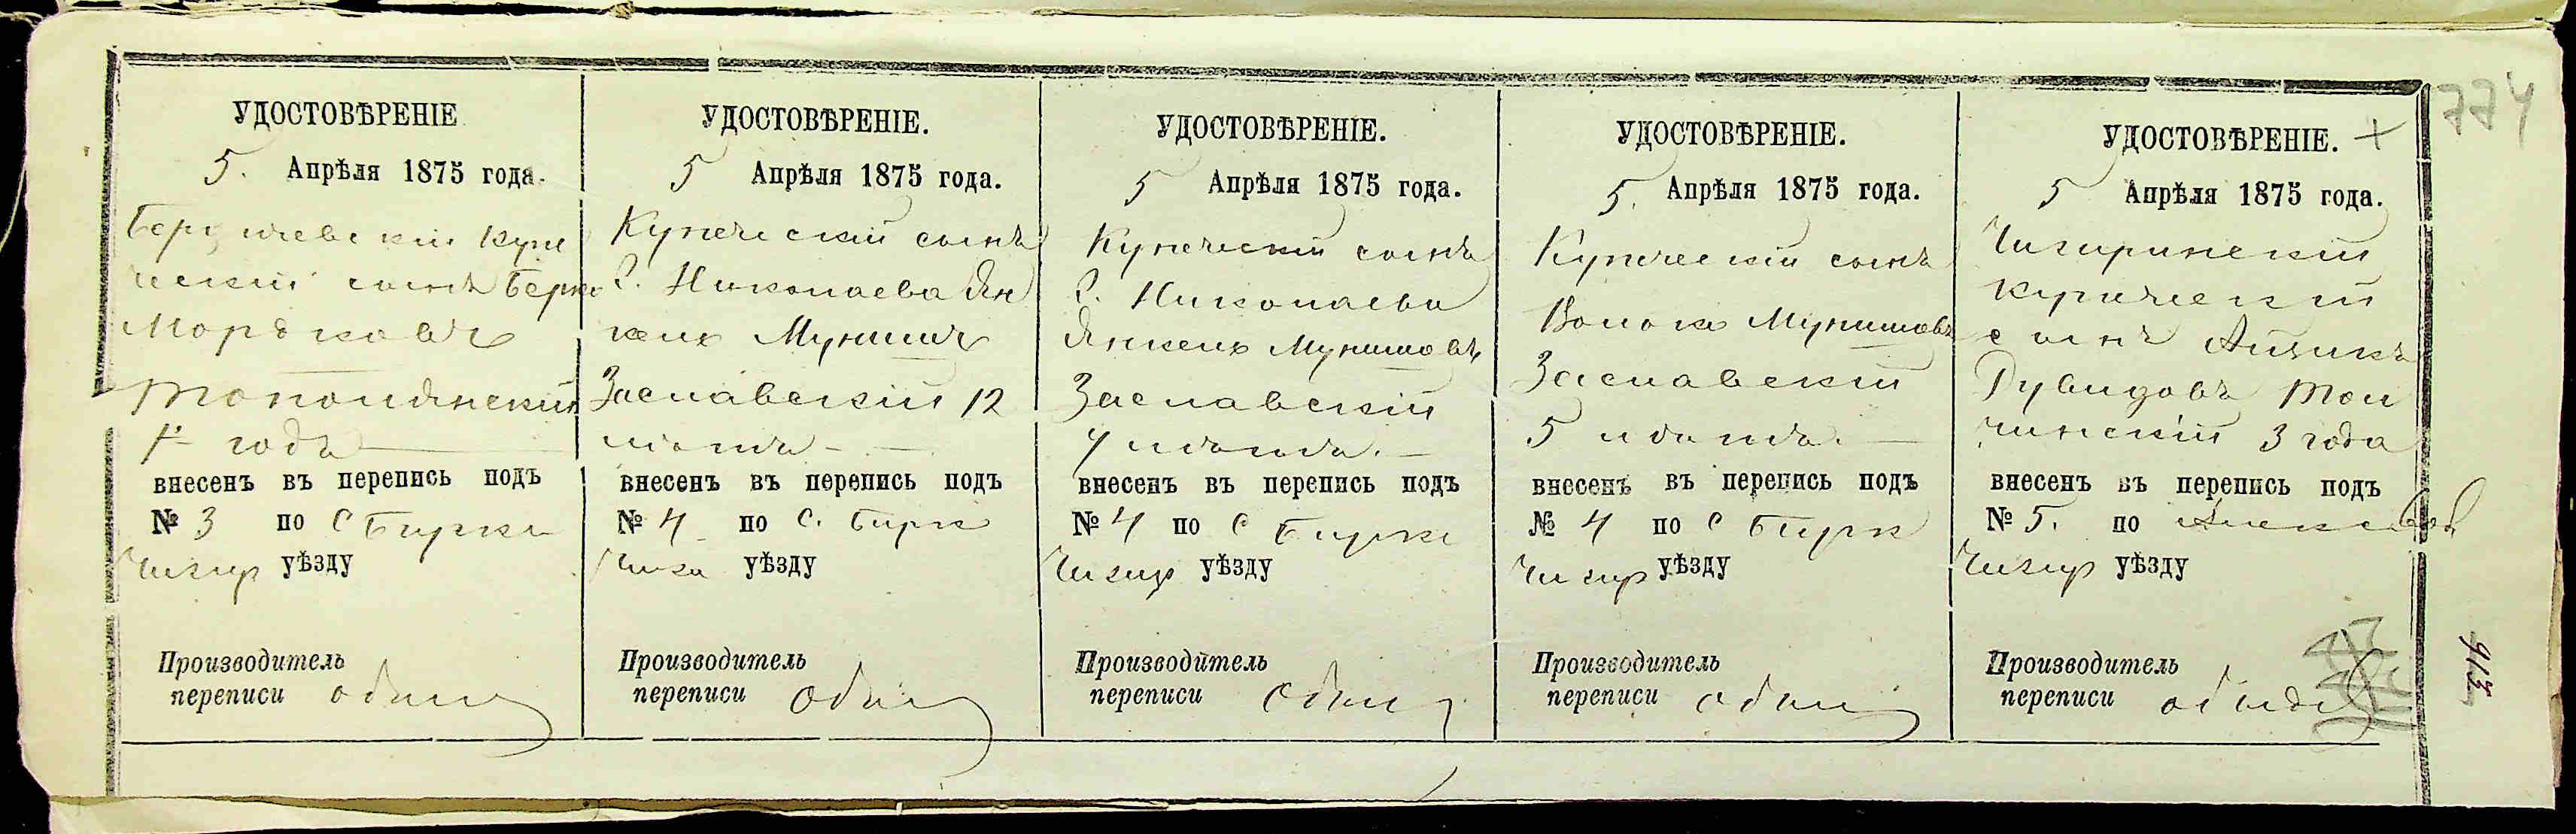 774
УДОСТОВѢРЕНІЕ
5. Апрѣля 1875 года.
Бердичевскій Купе
ческій сынъ Берко
Мордковъ
Тополянскій
1 годъ
внесенъ въ перепись подъ
№ 3 по С Бирки
Чигир уѣзду
Производитель
переписи
УДОСТОВѢРЕНІЕ.
5 Апрѣля 1875 года.
Купеческій сынъ
г. Николаева Ян
кель
Заславскій 12
лѣтъ
внесенъ въ перепись подъ
№ 4 по С. Бирк
Чиги уѣзду
Производитель
переписи
УДОСТОВѢРЕНІЕ.
5 Апрѣля 1875 года.
Купеческій сынъ
г. Николаева
Янкель Мунишовъ
Заславскій
лѣтъ.
внесенъ въ перепись подъ
№ 4 по С Бирки
Чигир уѣзду
Производитель
переписи
УДОСТОВѢРЕНІЕ.
5. Апрѣля 1875 года.
Купеческій сынъ
Мунишовъ
Заславскій
5 лѣтъ.
внесенъ въ перепись подъ
№ 4 по С Бирк
Чигир уѣзду
Производитель
переписи
УДОСТОВѢРЕНІЕ. +
5 Апрѣля 1875 года.
Чигиринскій
купеческій
сынъ Айзикъ
Дувидовъ Тол
чинскій 3 года
внесенъ въ перепись подъ
№ 5. по
Чигир уѣзду
Производитель
переписи
413